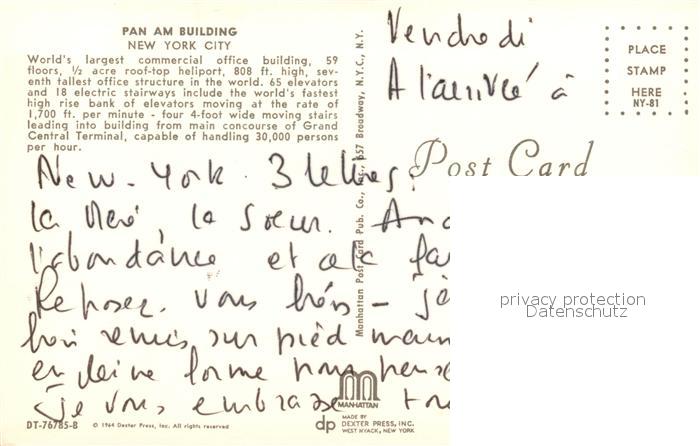 PAN AM BUILDING
NEW YORK CITY
World's largest commercial office building, 59
floors, ½ acre roof-top heliport, 808 ft. high, sev-
enth tallest office structure in the world. 65 elevators
and 18 electric stairways include the world's fastest
high rise bank of elevators moving at the rate of
1,700 ft. per minute - four 4-foot wide moving stairs
leading into building from main concourse of Grand
Central Terminal, capable of handling 30,000 persons
per hour.
Manhattan Post Card Pub. Co., Inc., 657 Broadway, N.Y.C., N.Y.
PLACE
STAMP
HERE
NY-81
Post Card
Vendredi
A l'arrivée à
New-York. 3 lettres,
la Mère, la Soeur.
l'abondance et cela
Reposez. vous
remis sur pied
en pleine forme nous
je vous embrasse
privacy protection
Datenschutz
MANHATTAN
DT-76785-B
© 1964 Dexter Press, Inc. All rights reserved
dp
MADE BY
DEXTER PRESS, INC.
WEST NYACK, NEW YORK